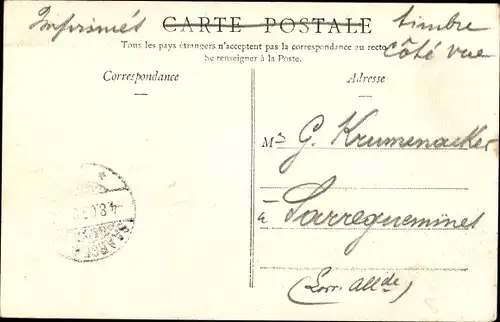 Imprimés
CARTE POSTALE
timbre
Côté vue
Tous les pays étrangers n'acceptent pas la correspondance au recto
Se renseigner à la Poste.
Correspondance
Adresse
G. Krumenacker
à Sarreguemines
(Lorr. Allde)
4.8.